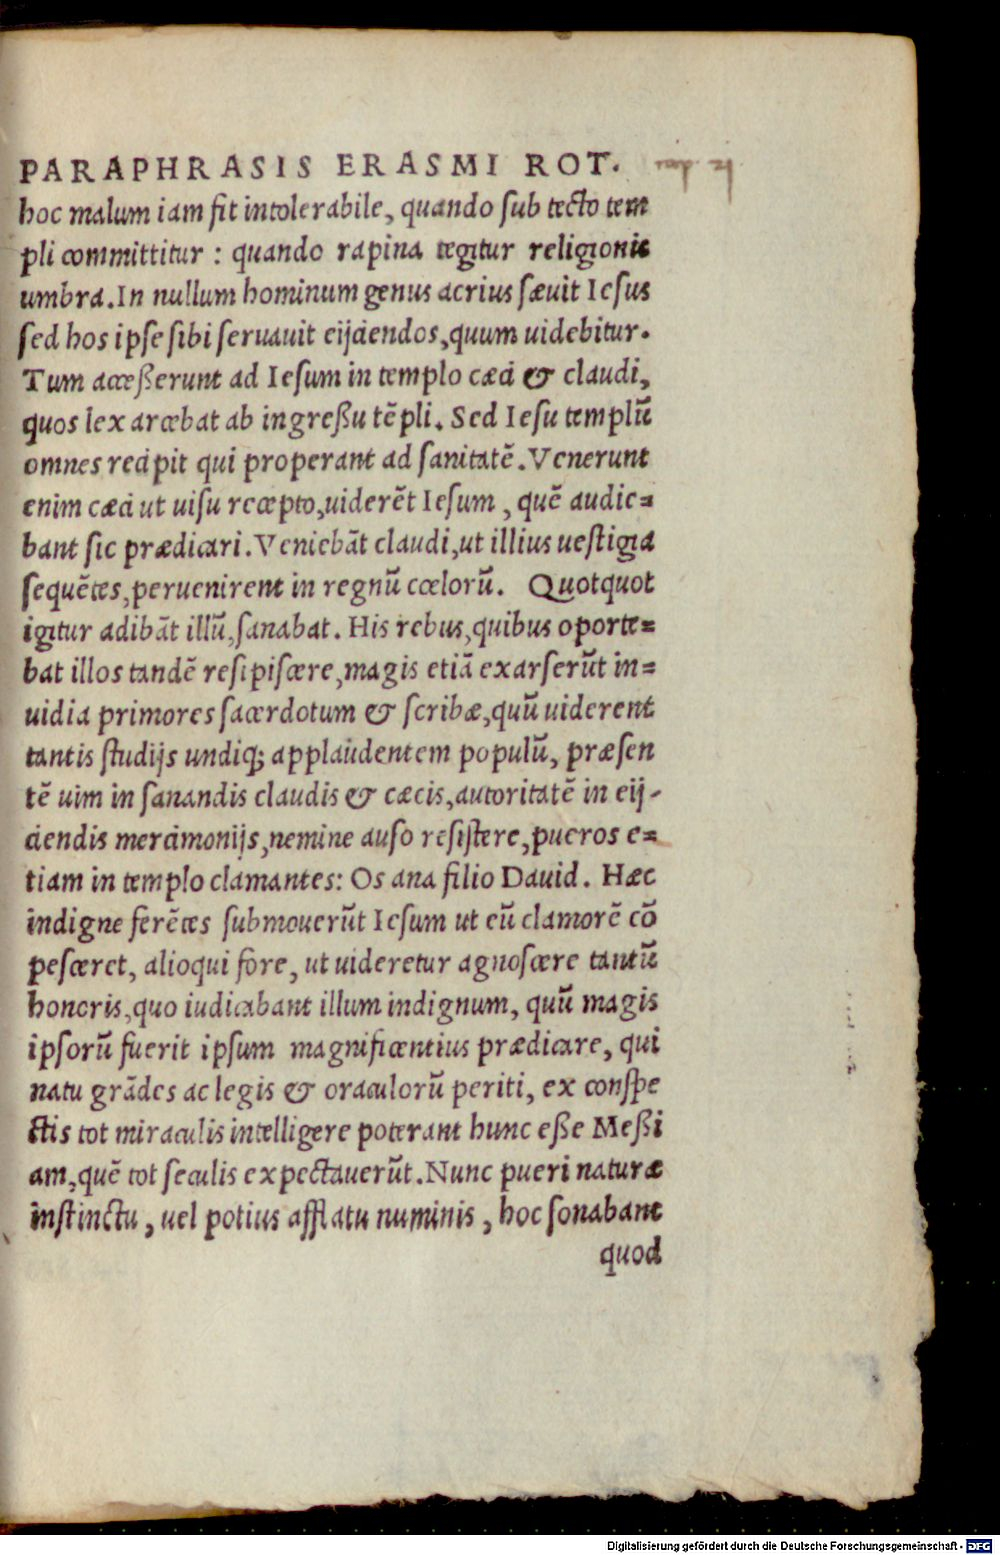 PARAPHRASIS ERASMI ROT.
hoc malum iam fit intolerabile, quando sub tecto tem
pli committitur : quando rapina tegitur religionis
umbra. In nullum hominum genus acrius sæuit Iesus
sed hos ipse sibi seruauit eijciendos, quum uidebitur.
Tum acceßerunt ad Iesum in templo cæci & claudi,
quos lex arcebat ab ingreßu tẽpli. Sed Iesu templũ
omnes recipit qui properant ad sanitatẽ. Venerunt
enim cæci ut uisu recepto, uiderẽt Iesum, quẽ audie=
bant sic prædicari. Veniebãt claudi, ut illius uestigia
sequẽtes, peruenirent in regnũ cœlorũ. Quotquot
igitur adibãt illũ, sanabat. His rebus, quibus oporte=
bat illos tandẽ resipiscere, magis etiã exarserũt in=
uidia primores sacerdotum & scribæ, quũ uiderent
tantis studijs undiq; applaudentem populũ, præsen
tẽ uim in sanandis claudis & cæcis, autoritatẽ in eij-
ciendis mercimonijs, nemine auso resistere, pueros e=
tiam in templo clamantes: Os ana filio Dauid. Hæc
indigne ferẽtes submouerũt Iesum ut eũ clamorẽ cõ
pesceret, alioqui fore, ut uideretur agnoscere tantũ
honoris, quo iudicabant illum indignum, quũ magis
ipsorũ fuerit ipsum magnificentius prædicare, qui
natu grãdes ac legis & oraculorũ periti, ex conspe
ctis tot miraculis intelligere poterant hunc eße Meßi
am, quẽ tot seculis expectauerũt. Nunc pueri naturæ
instinctu, uel potius afflatu numinis, hoc sonabant
quod
Digitalisierung gefördert durch die Deutsche Forschungsgemeinschaft - DFG